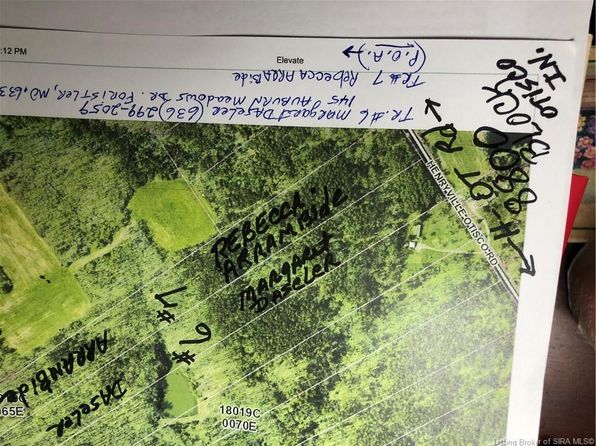 :12 PM
Elevate
(P.O.A.)
TR#7 Rebecca ARRAMBide
TR.#6 MARGARET DASELER (636) 299-2059
145 AUBURN MEADOWS DR. FORISTLER, MO, 633
OTISCO IN.
BLOCK
OT Rd
HENRYVILLE-OTISCO-RD
REBECCA
ARRAMBide
MARGARET
DASELER
#7
#6
ARRANBide
DASELER
065E
18019C
0070E
Listing Broker of SIRA MLS©